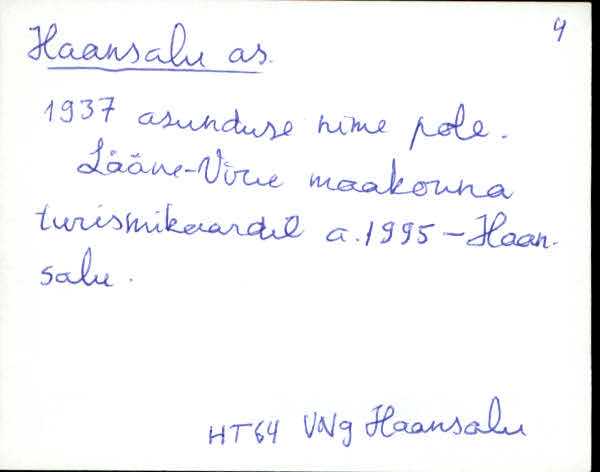 4
Haansalu as.
1937 asunduse nime pole.
Lääne-Viru maakonna
turismikaardil a. 1995 – Haan-
salu.
HT64 VNg Haansalu